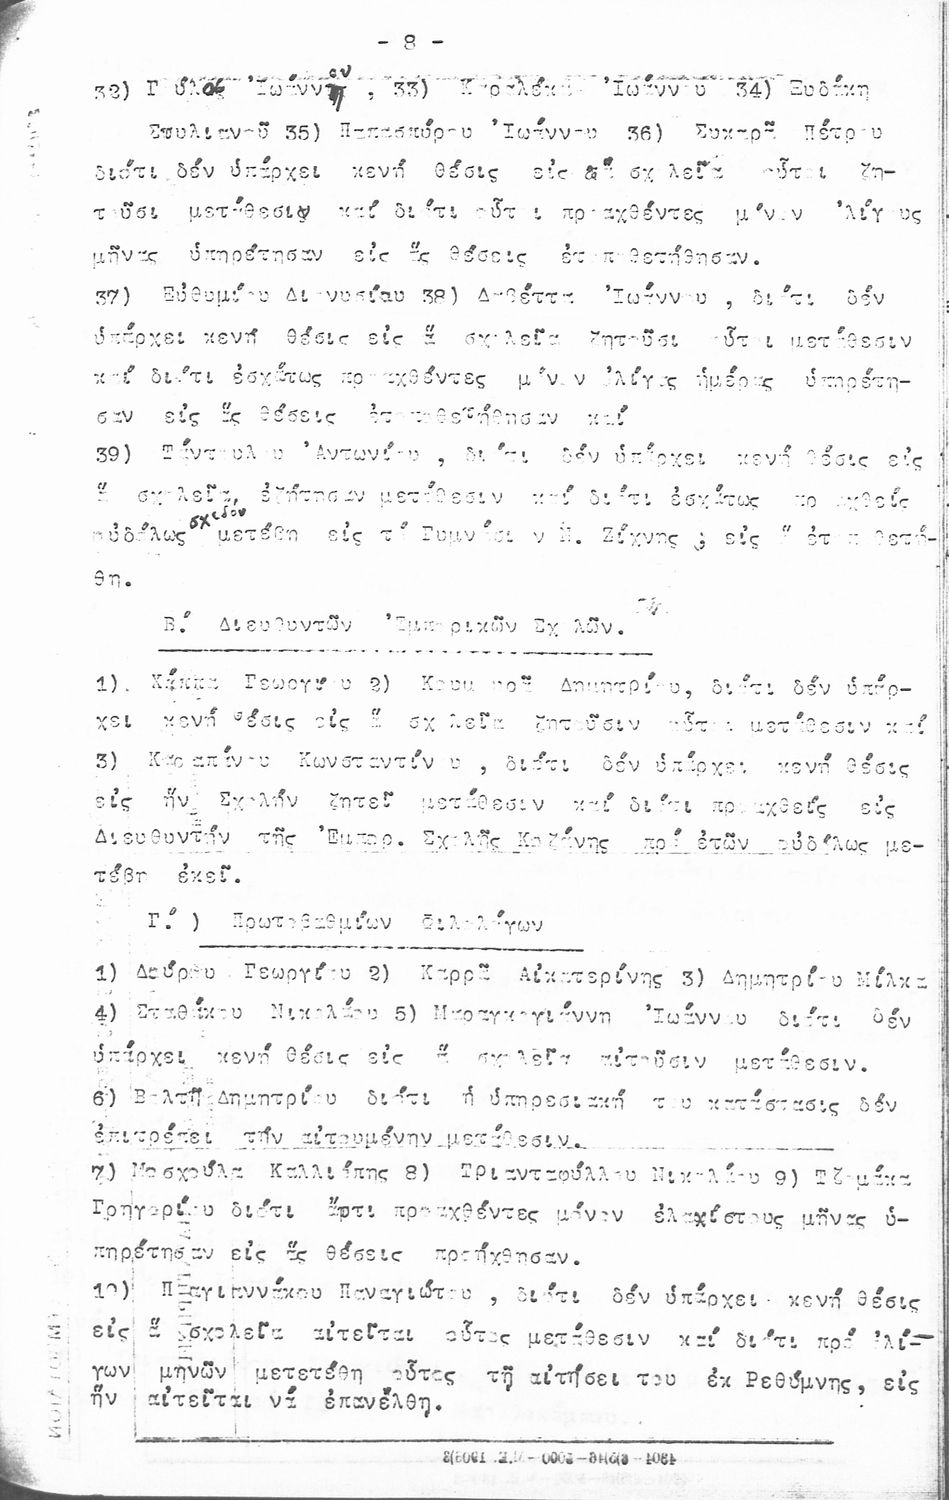 - 8 -
32) Γούλας Ἰωάννου, 33) Καραλέκα Ἰωάννου 34) Ξυδάκη
Στυλιανοῦ 35) Παπασπύρου Ἰωάννου 36) Συκαρᾶ Πέτρου
διότι δέν ὑπάρχει κενή θέσις εἰς ἅ σχολεῖα οὗτοι ζη-
τοῦσι μετάθεσιν καί διότι οὗτοι προαχθέντες μόνον ὀλίγους
μῆνας ὑπηρέτησαν εἰς ἅς θέσεις ἐτοποθετήθησαν.
37) Εὐθυμίου Διονυσίου 38) Δαβέττα Ἰωάννου , διότι δέν
ὑπάρχει κενή θέσις εἰς ἅ σχολεῖα ζητοῦσι οὗτοι μετάθεσιν
καί διότι ἐσχάτως προαχθέντες μόνον ὀλίγας ἡμέρας ὑπηρέτη-
σαν εἰς ἅς θέσεις ἐτοποθετήθησαν καί
39) Τάντουλου Ἀντωνίου , διότι δέν ὑπάρχει κενή θέσις εἰς
ἅ σχολεῖα, ἐζήτησαν μετάθεσιν καί διότι ἐσχάτως προαχθείς
οὐδόλως σχεδον μετέβη εἰς τό Γυμνάσιον Ν. Ζίχνης , εἰς ὅ ἐτοποθετή-
θη.
Β.΄ Διευθυντῶν Ἐμπορικῶν Σχολῶν.
1). Χάππα Γεωργίου 2) Κουμανοῦ Δημητρίου, διότι δέν ὑπάρ-
χει κενή θέσις εἰς ἅ σχολεῖα ζητοῦσιν οὗτοι μετάθεσιν καί
3) Καραπάνου Κωνσταντίνου , διότι δέν ὑπάρχει κενή θέσις
εἰς ἥν Σχολήν ζητεῖ μετάθεσιν καί διότι προαχθείς εἰς
Διευθυντήν τῆς Ἐμπορ. Σχολῆς Κοζάνης πρό ἐτῶν οὐδόλως με-
τέβη ἐκεῖ.
Γ.΄ ) Πρωτοβαθμίων Φιλολόγων
1) Δούρου Γεωργίου 2) Καρρᾶ Αἰκατερίνης 3) Δημητρίου Μίλκα
4) Σταθάκου Νικολάου 5) Μαραγκογιάννη Ἰωάννου διότι δέν
ὑπάρχει κενή θέσις εἰς ἅ σχολεῖα αἰτοῦσιν μετάθεσιν.
6) Βαλτῆ Δημητρίου διότι ἡ ὑπηρεσιακή του κατάστασις δέν
ἐπιτρέπει τήν αἰτουμένην μετάθεσιν.
7) Μοσχούλα Καλλιόπης 8) Τριανταφύλλου Νικολάου 9) Τζομάκα
Γρηγορίου διότι ἄρτι προαχθέντες μόνον ἐλαχίστους μῆνας ὑ-
πηρέτησαν εἰς ἅς θέσεις προήχθησαν.
10) Παγιαννάκου Παναγιώτου , διότι δέν ὑπάρχει κενή θέσις
εἰς ἅ σχολεῖα αἰτεῖται οὗτος μετάθεσιν καί διότι πρό ὀλί-
γων μηνῶν μετετέθη οὗτος τῇ αἰτήσει του ἐκ Ρεθύμνης, εἰς
ἥν αἰτεῖται νά ἐπανέλθῃ.